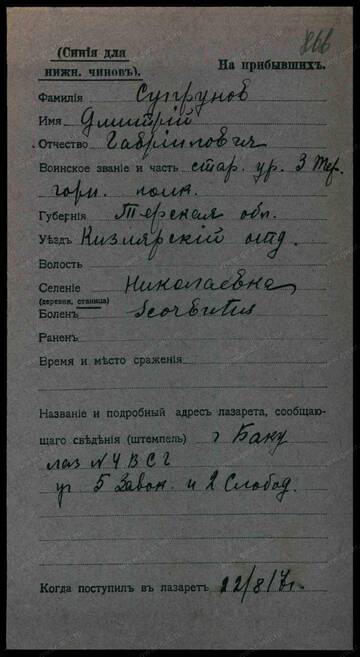 866
(Синія для
нижн. чиновъ).
На прибывшихъ.
Фамилія Супруновъ
Имя Дмитрій
Отчество Гавріиловичъ
Воинское званіе и часть стар. ур. 3 Тер.
горн. полк.
Губернія Терская обл.
Уѣздъ Кизлярскій отд.
Волость
Селеніе Николаевка
(деревня, станица)
Боленъ Scorbutus
Раненъ
Время и мѣсто сраженія
Названіе и подробный адресъ лазарета, сообщаю-
щаго свѣдѣнія (штемпель) г Баку
лаз N 4 В С Г
уг 5 Завок. и 2 Слобод.
Когда поступилъ въ лазаретъ 22/8/17г.